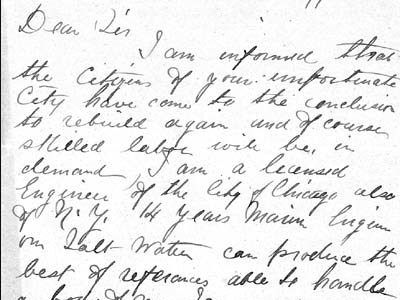 Dear Sir
I am informed that
the Citizens of your unfortunate
City have come to the conclusion
to rebuild again and of course
skilled labor will be in
demand, I am a licensed
Engineer of the City of Chicago also
of N. Y. 14 years Marin Engin
on Salt Water can produce the
best of referances able to handle